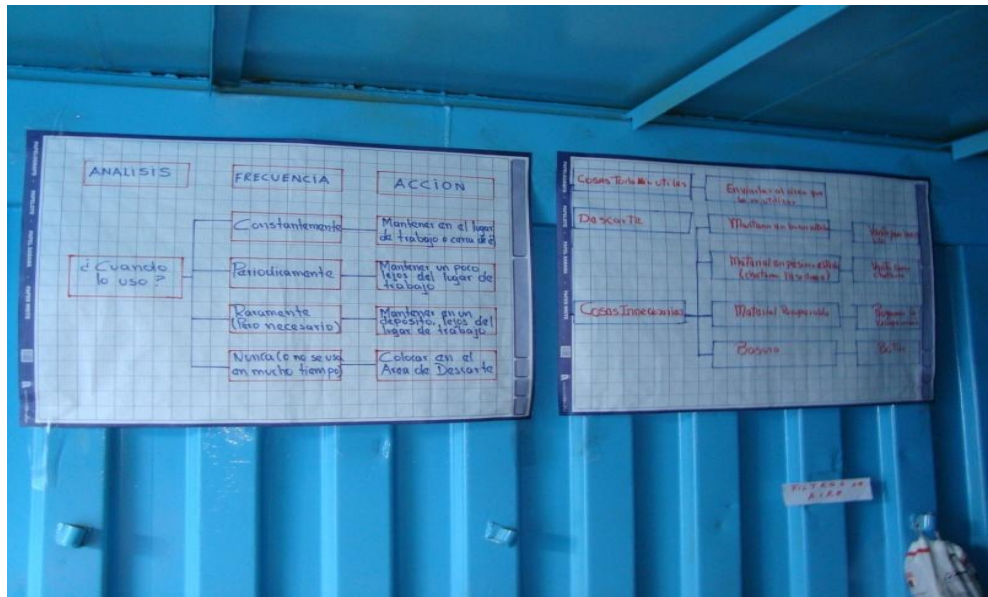 ANALISIS
FRECUENCIA
ACCION
¿Cuando
lo uso?
Constantemente
Mantener en el lugar
de trabajo o cerca de él
Periodicamente
Mantener un poco
lejos del lugar de
trabajo
Raramente
(Pero necesario)
Mantener en un
deposito, lejos del
lugar de trabajo
Nunca (o no se usa
en mucho tiempo)
Colocar en el
Area de Descarte
Cosas Todavía utiles
Enviarlas al area que
Descarte
Cosas Innecesarias
Material en
Material en pesimo estado
Material Recuperable
Basura
FILTROS DE
AIRE